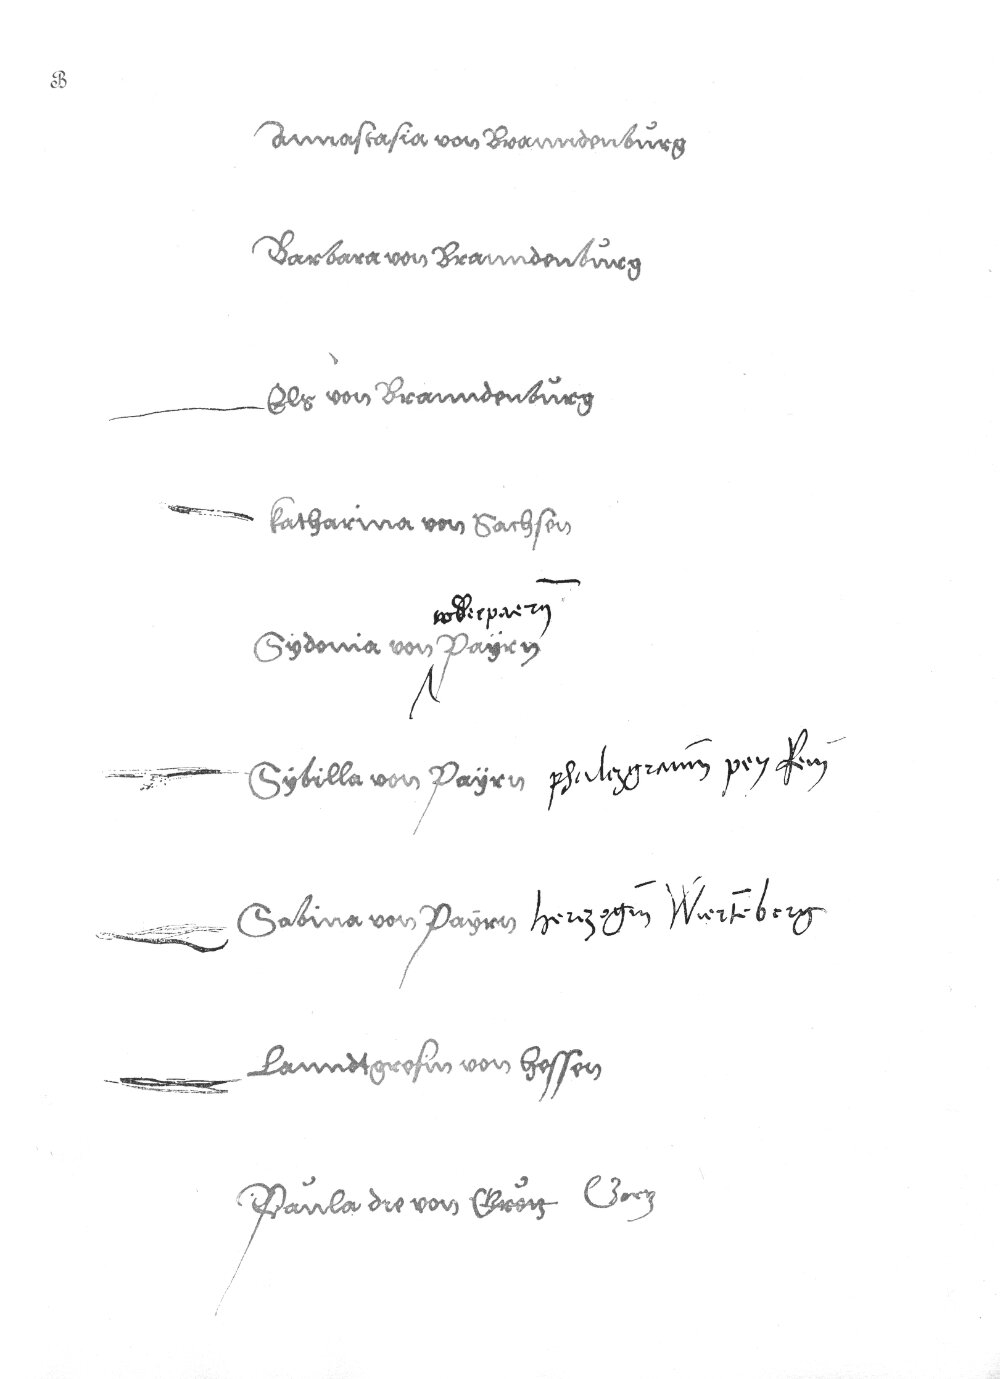 B
Annastasia von Branndenburg
Barbara von Branndenburg
Els von Branndenburg
katharina von Sachsen
Sydonia von Paÿrn
Sÿbilla von Paÿrn phalczgravin pey Rein
Sabina von Paÿrn herczogin Wiertēberg
Lanndtgrefin von hessen
Paula die von Gorz